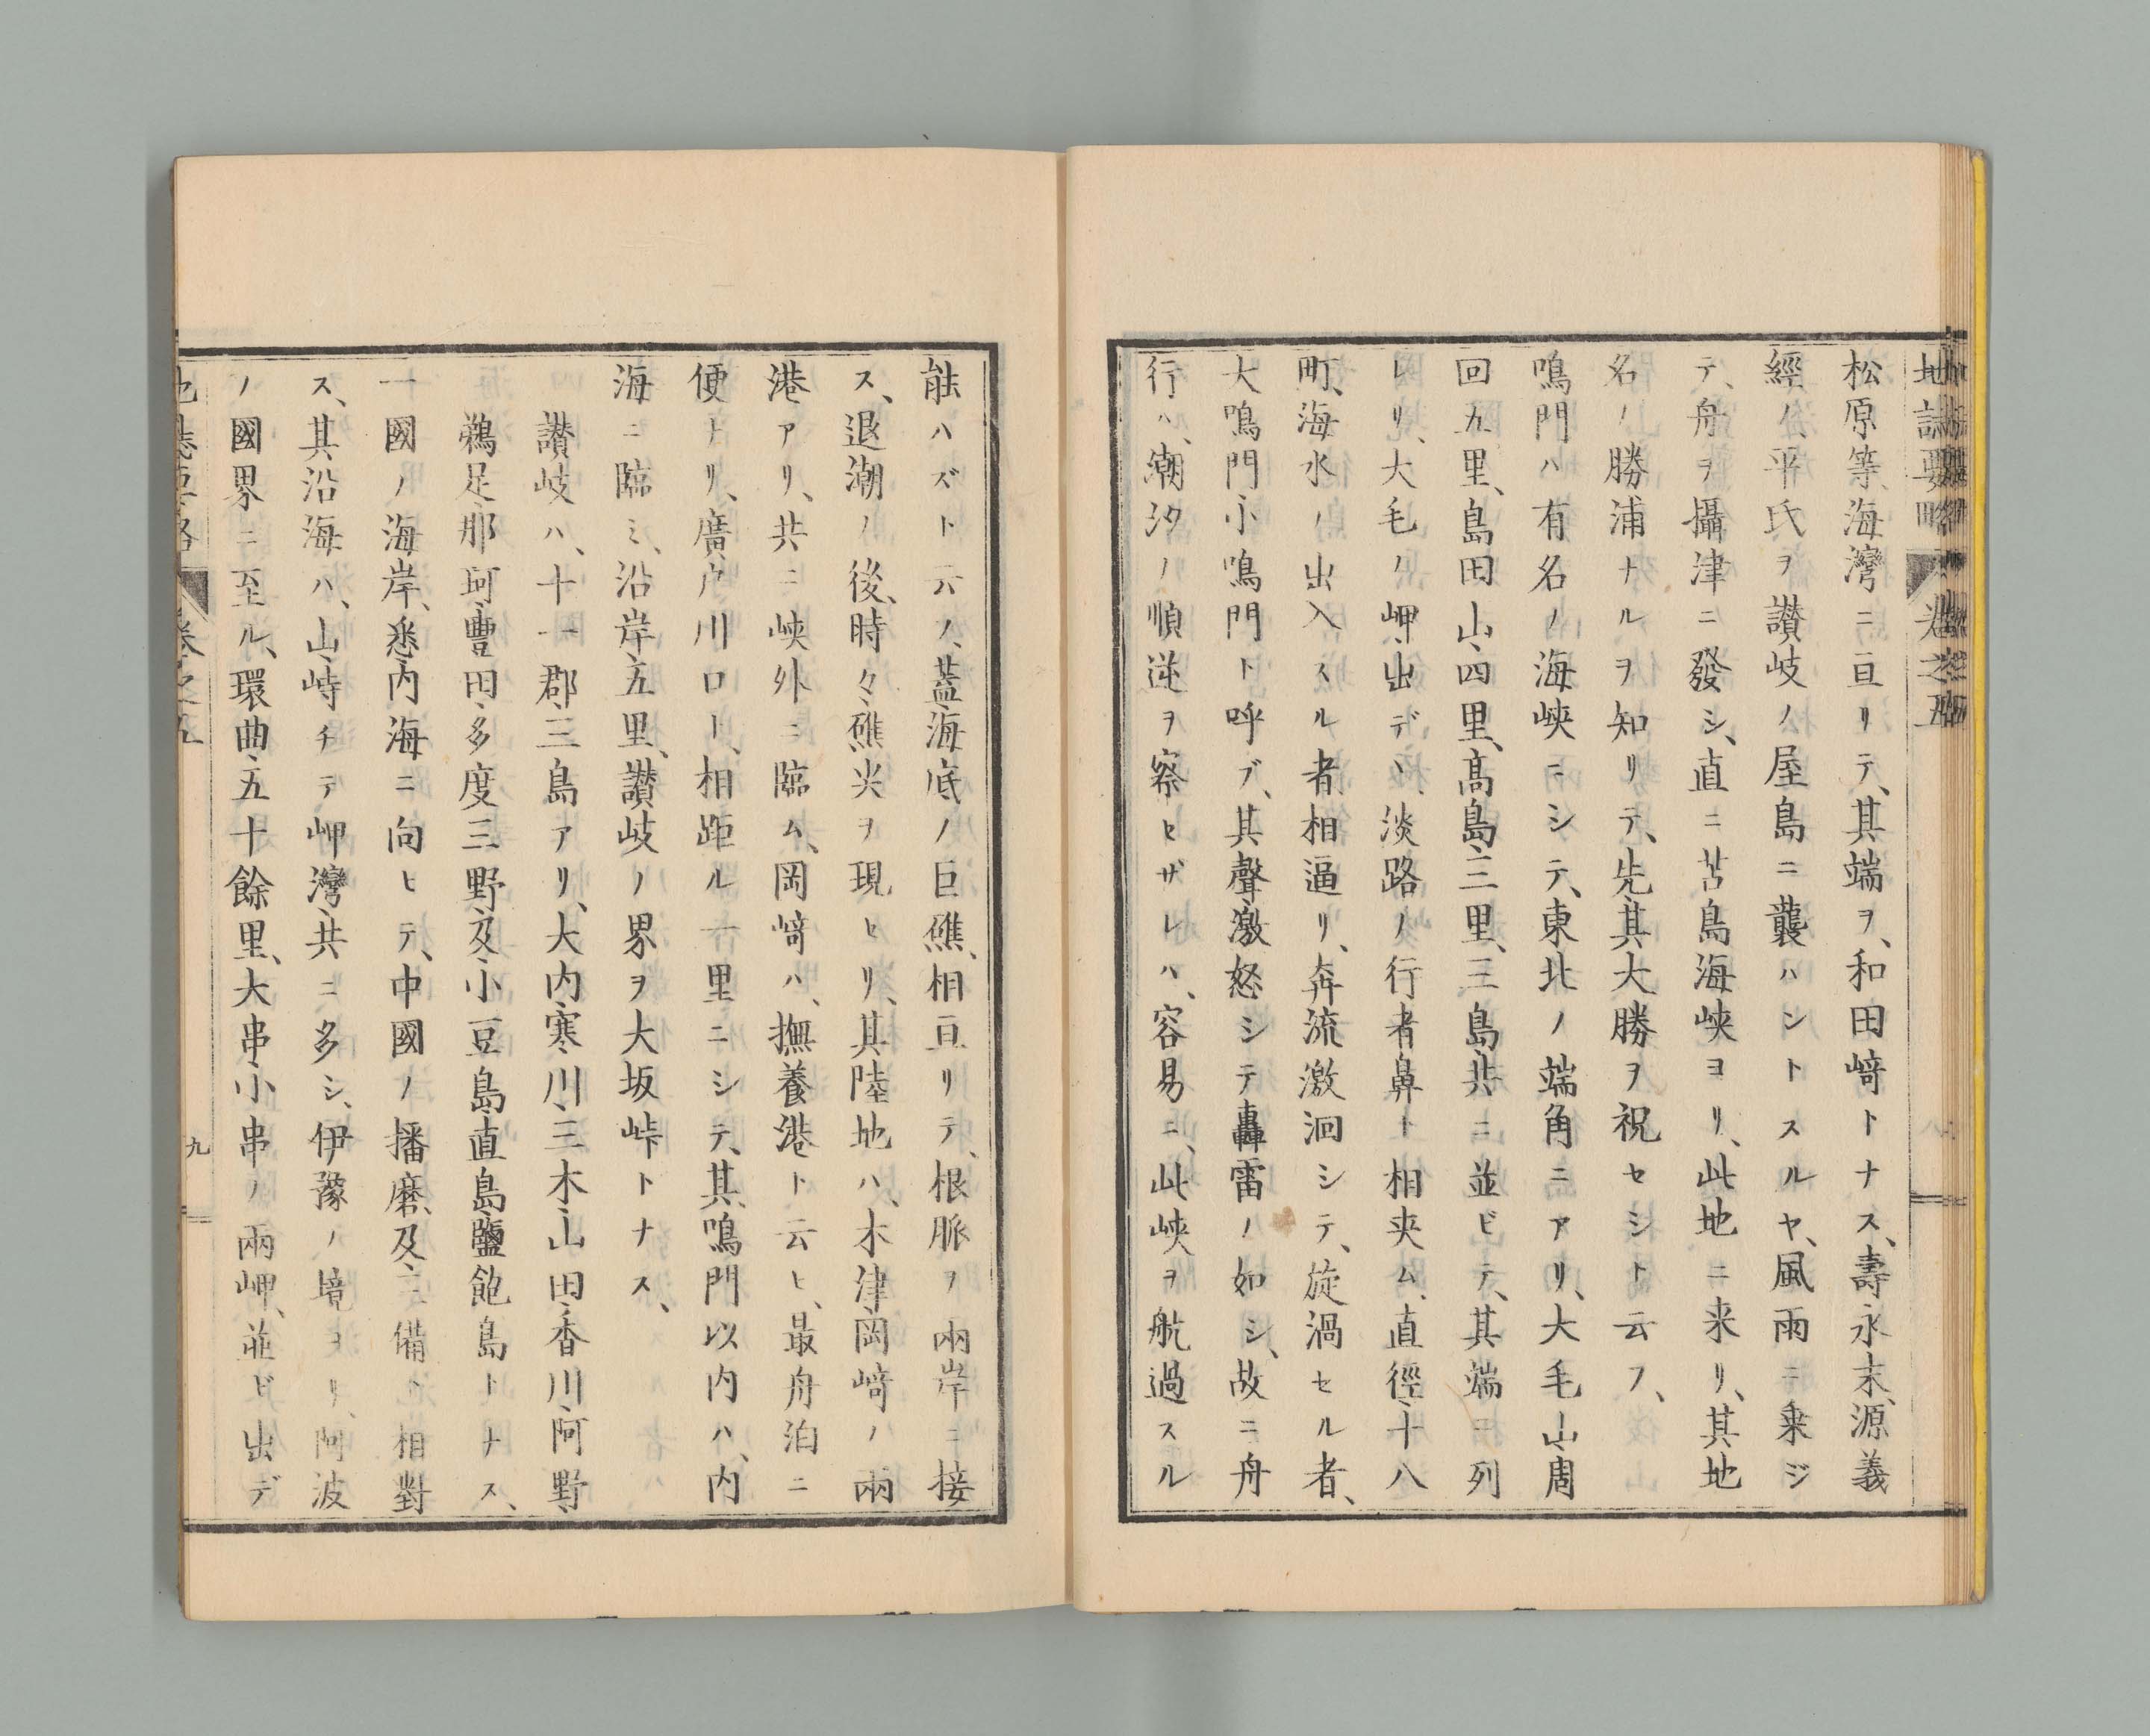 地誌要略 卷之五
松原等、海灣ニ亘リテ、其端ヲ、和田﨑トナス、壽永末、源義
經ノ、平氏ヲ讃岐ノ屋島ニ襲ハントスルヤ、風雨ニ乗ジ
テ、舟ヲ攝津ニ發シ、直ニ苫島海峽ヨリ、此地ニ来リ、其地
名ノ勝浦ナルヲ知リテ、先其大勝ヲ祝セシト云フ、
鳴門ハ有名ノ海峽ニシテ、東北ノ端角ニアリ、大毛山、周
回五里、島田山、四里、髙島、三里、三島共ニ並ビテ、其端ニ列
レリ、大毛ノ岬、出デヽ、淡路ノ行者鼻ト相夾ム、直徑、十八
町、海水ノ出入スル者相逼リ、奔流激洄シテ、旋渦セル者、
大鳴門小鳴門ト呼ブ、其聲激怒シテ轟雷ノ如シ、故ニ舟
行ハ、潮汐ノ順逆ヲ察セザレハ、容易ニ、此峽ヲ航過スル
能ハズト云ノ、蓋海底ノ巨礁、相亘リテ、根脈ヲ兩岸ニ接
ス、退潮ノ後、時々礁尖ヲ現セリ、其陸地ハ、木津、岡﨑ノ兩
港アリ、共ニ峽外ニ臨ム、岡﨑ハ、撫養港ト云ヒ、最舟泊ニ
便ナリ、廣戸川口ト、相距ル一里ニシテ、其鳴門以内ハ、内
海ニ臨ミ、沿岸五里、讃岐ノ界ヲ大坂峠トナス、
讃岐ハ、十一郡三島アリ、大内、寒川、三木、山田、香川、阿野、
鵜足、那珂、豐田、多度、三野、及、小豆島、直島、鹽飽島トナス、
一國ノ海岸、悉内海ニ向ヒテ、中國ノ播磨、及三備ト相對
ス、其沿海ハ、山峙チテ岬灣共ニ多シ、伊豫ノ境ヨリ、阿波
ノ國界ニ至ル、環曲、五十餘里、大串、小串ノ兩岬、並ビ出デ
地誌要略 卷之五 九